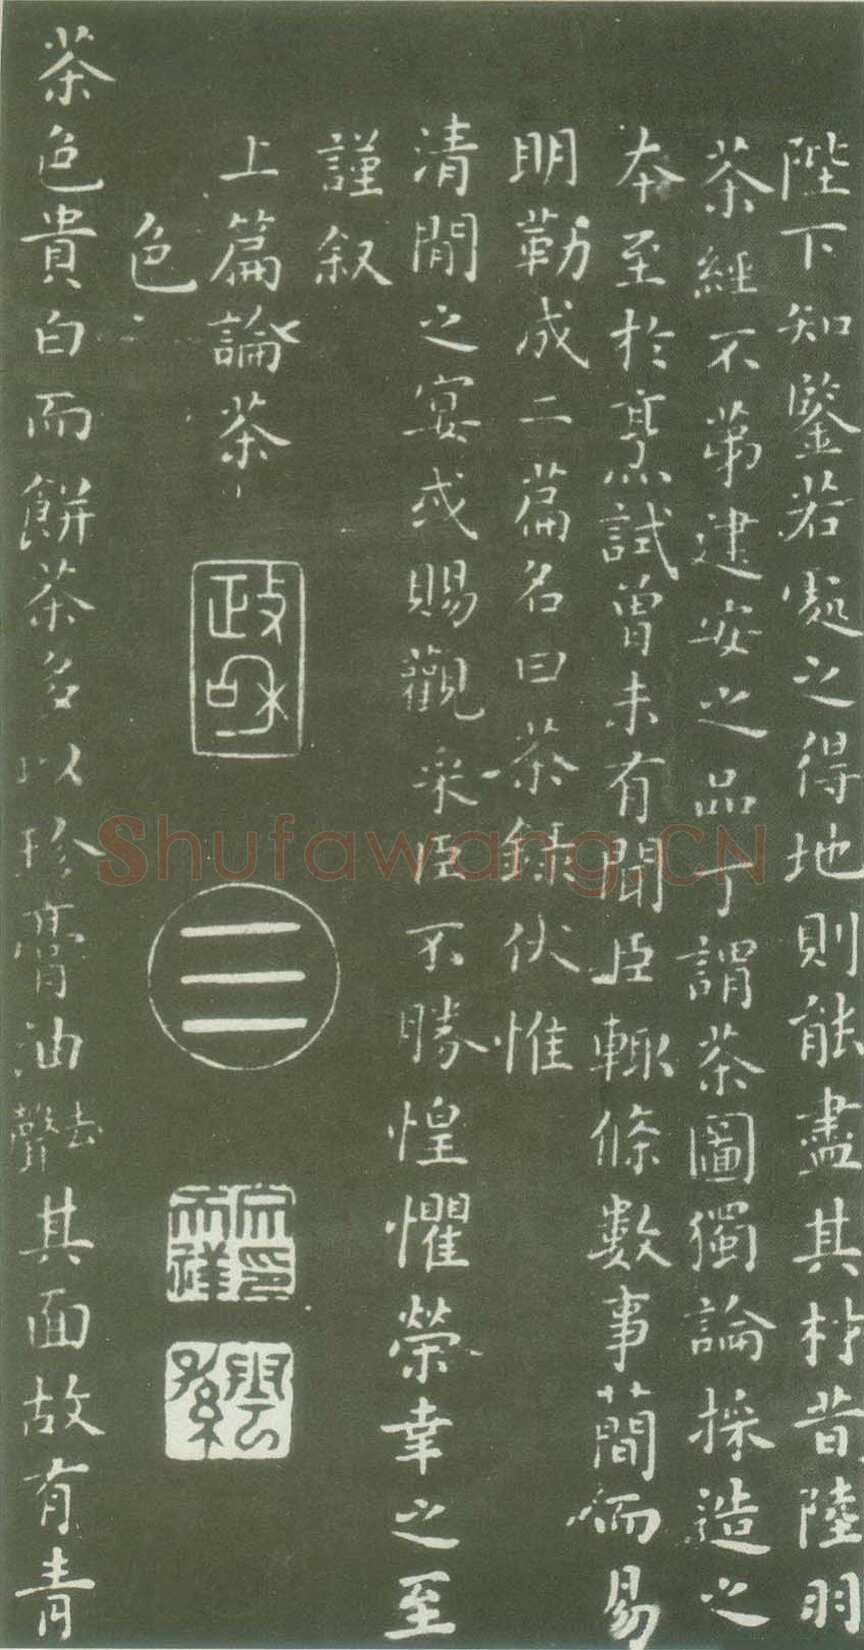 陛下知鑒若處之得地則能盡其材昔陸羽
茶經不第建安之品丁謂茶圖獨論採造之
本至於烹試曾未有聞臣輒條數事簡而易
明勒成二篇名曰茶錄伏惟
清閒之宴或賜觀采臣不勝惶懼榮幸之至
謹叙
上篇論茶
政和
色
茶色貴白而餅茶多以珍膏油去聲其面故有青
Shufawang.CN